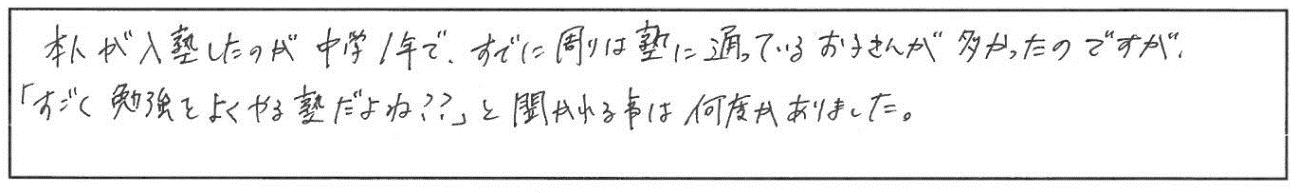 本人が入塾したのが中学1年で、すでに周りは塾に通っているお子さんが多かったのですが、
「すごく勉強をよくやる塾だよね??」と聞かれる事は何度かありました。